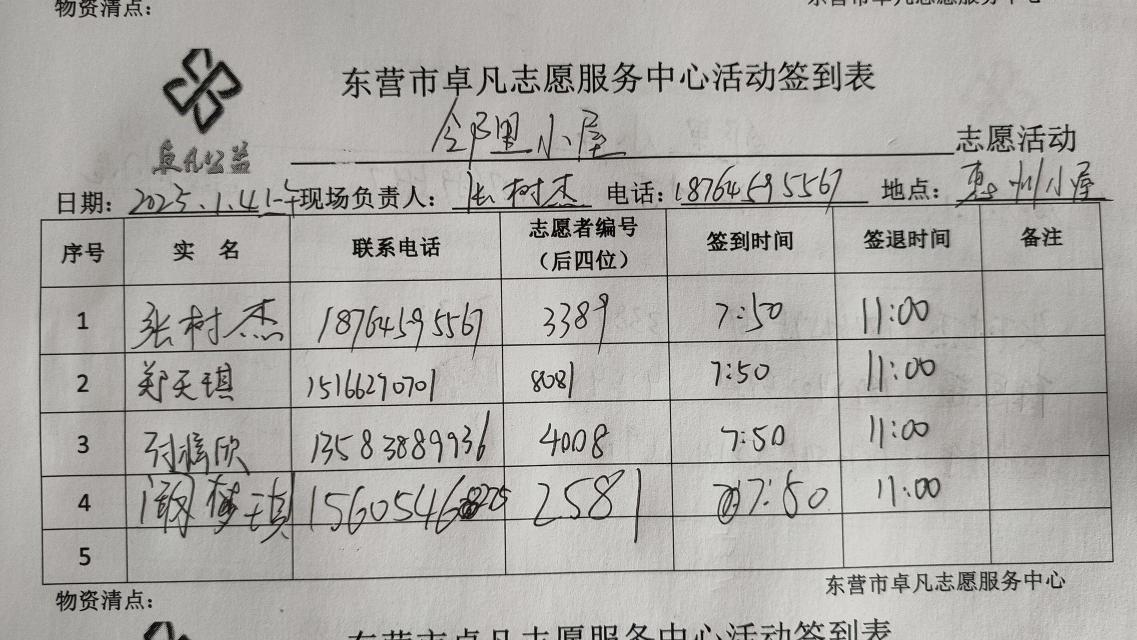 物资清点：
东营市卓凡志愿服务中心
东营市卓凡志愿服务中心活动签到表
卓凡公益
邻里小屋 志愿活动
日期：2025.1.4上午 现场负责人：张树杰 电话：18764595567 地点：惠州小屋
序号 实 名 联系电话 志愿者编号（后四位） 签到时间 签退时间 备注
1 张树杰 18764595567 3389 7:50 11:00
2 郑天琪 15166270701 8081 7:50 11:00
3 欣 13583889936 4008 7:50 11:00
4 梦琪 1560546 2581 7:50 11:00
5
东营市卓凡志愿服务中心
物资清点：
东营市卓凡志愿服务中心活动签到表